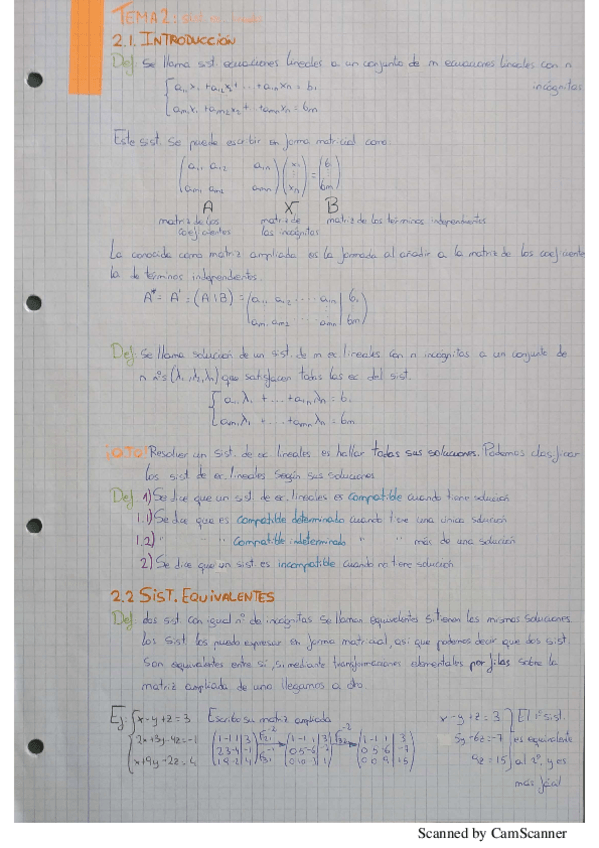 TEMA 2: Sist. ec. lineales
2.1. INTRODUCCIÓN
Def: Se llama sist. ecuaciones lineales a un conjunto de m ecuaciones lineales con n
incógnitas
a₁₁x₁ + a₁₂x₂ + ... + a₁ₙxₙ = b₁
aₘ₁x₁ + aₘ₂x₂ + + aₘₙxₙ = bₘ
Este sist. se puede escribir en forma matricial como
(a₁₁ a₁₂ a₁ₙ) (x₁) = (b₁)
(aₘ₁ aₘ₂ aₘₙ) (xₙ) (bₘ)
A X B
matriz de los matriz de matriz de los términos independientes
coeficientes las incógnitas
La conocida como matriz ampliada es la formada al añadir a la matriz de los coeficiente
la de términos independientes.
A* = A' = (A | B) = (a₁₁ a₁₂ ... a₁ₙ | b₁)
(aₘ₁ aₘ₂ ... aₘₙ | bₘ)
Def: Se llama solución de un sist. de m ec. lineales con n incógnitas a un conjunto de
n nºs (λ₁, λ₂, λₙ) que satisfacen todas las ec. del sist.
a₁₁λ₁ + ... + a₁ₙλₙ = b₁
aₘ₁λ₁ + ... + aₘₙλₙ = bₘ
¡OJO! Resolver un sist. de ec. lineales es hallar todas sus soluciones. Podemos clasificar
los sist de ec. lineales según sus soluciones
Def: 1) Se dice que un sist de ec. lineales es compatible cuando tiene solución
1.1) Se dice que es compatible determinado cuando tiene una única solución
1.2) " " compatible indeterminado " " más de una solución
2) Se dice que un sist. es incompatible cuando no tiene solución
2.2 SIST. EQUIVALENTES
Def: dos sist con igual nº de incógnitas se llaman equivalentes si tienen las mismas soluciones.
Los sist los puedo expresar en forma matricial, así que podemos decir que dos sist.
son equivalentes entre sí, si mediante transformaciones elementales por filas sobre la
matriz ampliada de uno llegamos a otro
Ej: x-y+z=3 Escribo su matriz ampliada x-y+z=3 El 1º sist.
2x+3y-4z=-1 5y-6z=-7 es equivalente
x+9y-2z=4 9z=15 al 2º, y es
más fácil
Scanned by CamScanner